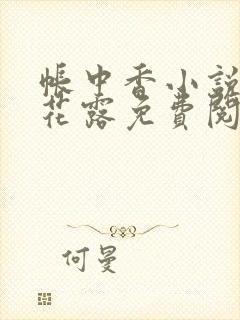 帳中香小說
花露免費閱
何曼